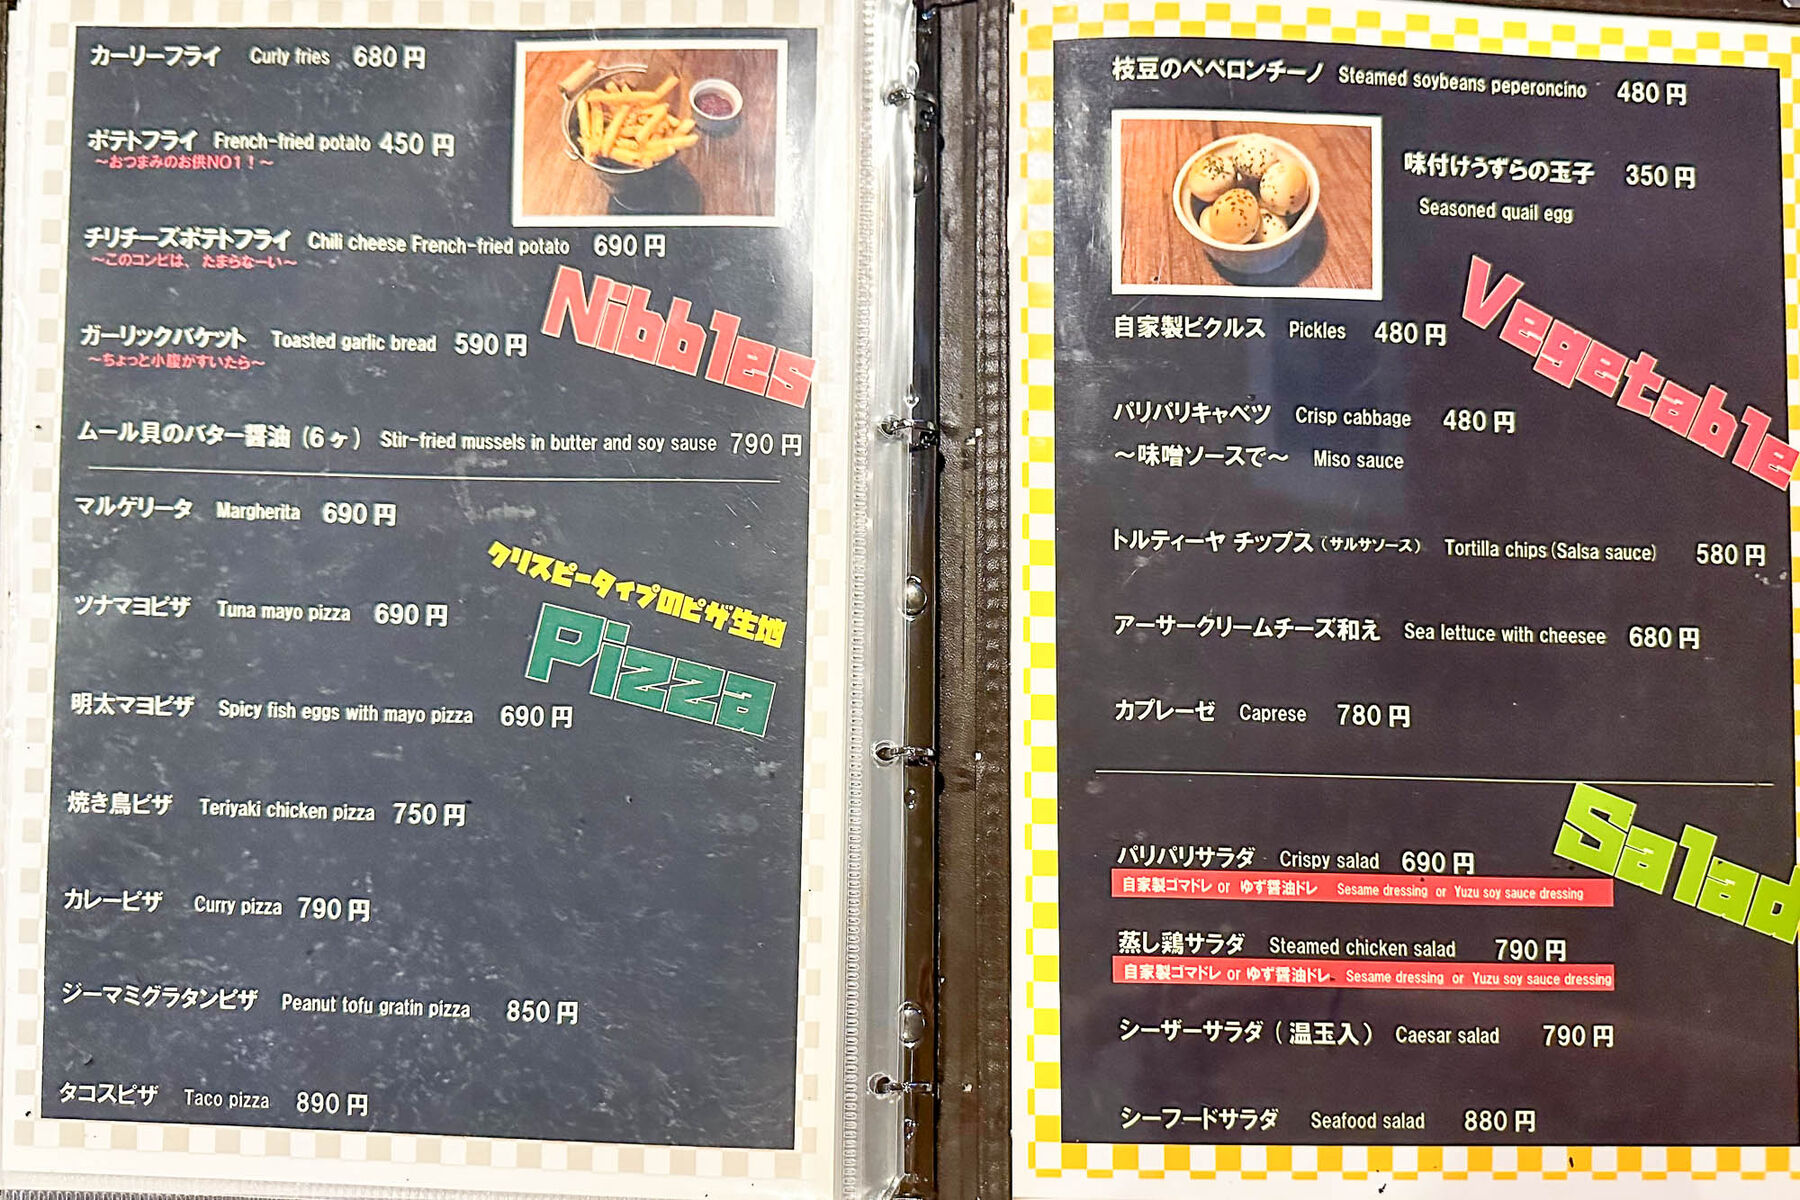 カーリーフライ Curly fries 680円
ポテトフライ French-fried potato 450円
～おつまみのお供NO1！～
チリチーズポテトフライ Chili cheese French-fried potato 690円
～このコンビは、たまらなーい～
Nibbles
ガーリックバケット Toasted garlic bread 590円
～ちょっと小腹がすいたら～
ムール貝のバター醤油（6ヶ） Stir-fried mussels in butter and soy sause 790円
マルゲリータ Margherita 690円
クリスピータイプのピザ生地
Pizza
ツナマヨピザ Tuna mayo pizza 690円
明太マヨピザ Spicy fish eggs with mayo pizza 690円
焼き鳥ピザ Teriyaki chicken pizza 750円
カレーピザ Curry pizza 790円
ジーマミグラタンピザ Peanut tofu gratin pizza 850円
タコスピザ Taco pizza 890円
枝豆のペペロンチーノ Steamed soybeans peperoncino 480円
味付けうずらの玉子 350円
Seasoned quail egg
Vegetable
自家製ピクルス Pickles 480円
パリパリキャベツ Crisp cabbage 480円
～味噌ソースで～ Miso sauce
トルティーヤ チップス（サルサソース） Tortilla chips(Salsa sauce) 580円
アーサークリームチーズ和え Sea lettuce with cheesee 680円
カプレーゼ Caprese 780円
Salad
パリパリサラダ Crispy salad 690円
自家製ゴマドレ or ゆず醤油ドレ Sesame dressing or Yuzu soy sauce dressing
蒸し鶏サラダ Steamed chicken salad 790円
自家製ゴマドレ or ゆず醤油ドレ Sesame dressing or Yuzu soy sauce dressing
シーザーサラダ（温玉入） Caesar salad 790円
シーフードサラダ Seafood salad 880円